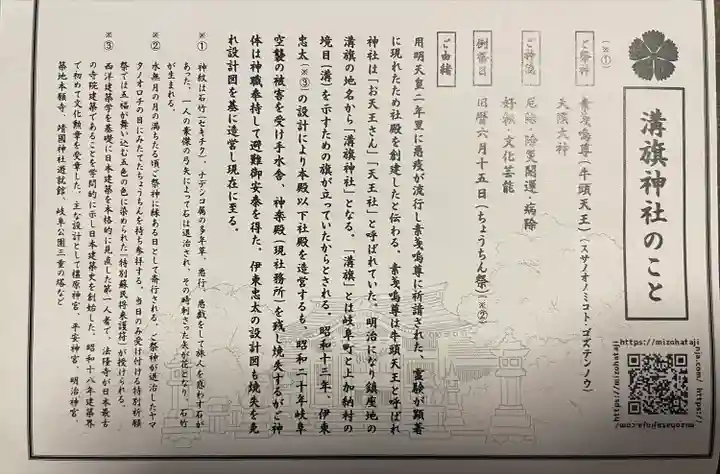 溝旗神社のこと
https://mizohatajinja.com/
https://mizohatajinja.com/
(※①)
ご祭神
素戔嗚尊(牛頭天王)(スサノオノミコト、ゴズテンノウ)
天隠大神
ご神徳
厄除・除災開運・病除
好報・文化芸能
例祭日
旧暦六月十五日(ちょうちん祭)(※②)
ご由緒
用明天皇二年里に悪疫が流行し素戔嗚尊に祈請された、霊験が顕著
に現れたため社殿を創建したと伝わる。素戔嗚尊は牛頭天王と呼ばれ
神社は「お天王さん」「天王社」と呼ばれていた。明治になり鎮座地の
溝旗の地名から「溝旗神社」となる。「溝旗」とは岐阜町と上加納村の
境目(溝)を示すための旗が立っていたからとされる。昭和十三年、伊東
忠太(※③)の設計により本殿以下社殿を造営するも、昭和二十年岐阜
空襲の被害を受け手水舎、神楽殿(現社務所)を残し焼失するがご神
体は神職奉持して避難御安泰を得た。伊東忠太の設計図も焼失を免
れ設計図を基に造営し現在に至る。
※① 神紋は石竹(セキチク)、ナデシコ属の多年草。悪行、悪戯をして旅人を惑わす石が
あった、一人の豪傑の弓矢によって石は退治され、その時刺さった矢が花となり、石竹
が生まれる。
※② 水無月の月の満ちたる頃ご祭神に縁ある日として斎行される。ご祭神が退治したヤマ
タノオロチの目にみたてたちょうちんを持ち参拝する。当日のみ受け付ける特別祈願
祭では五福が舞い込む五色の色に染められた「特別蘇民将来護符」が授けられる。
※③ 西洋建築学を基礎に日本建築を本格的に見直した第一人者で、法隆寺が日本最古
の寺院建築であることを学問的に示し日本建築史を創始した。昭和十八年建築界
で初めて文化勲章を受章した。主な設計として橿原神宮、平安神宮、明治神宮、
築地本願寺、靖國神社遊就館、岐阜公園三重の塔など